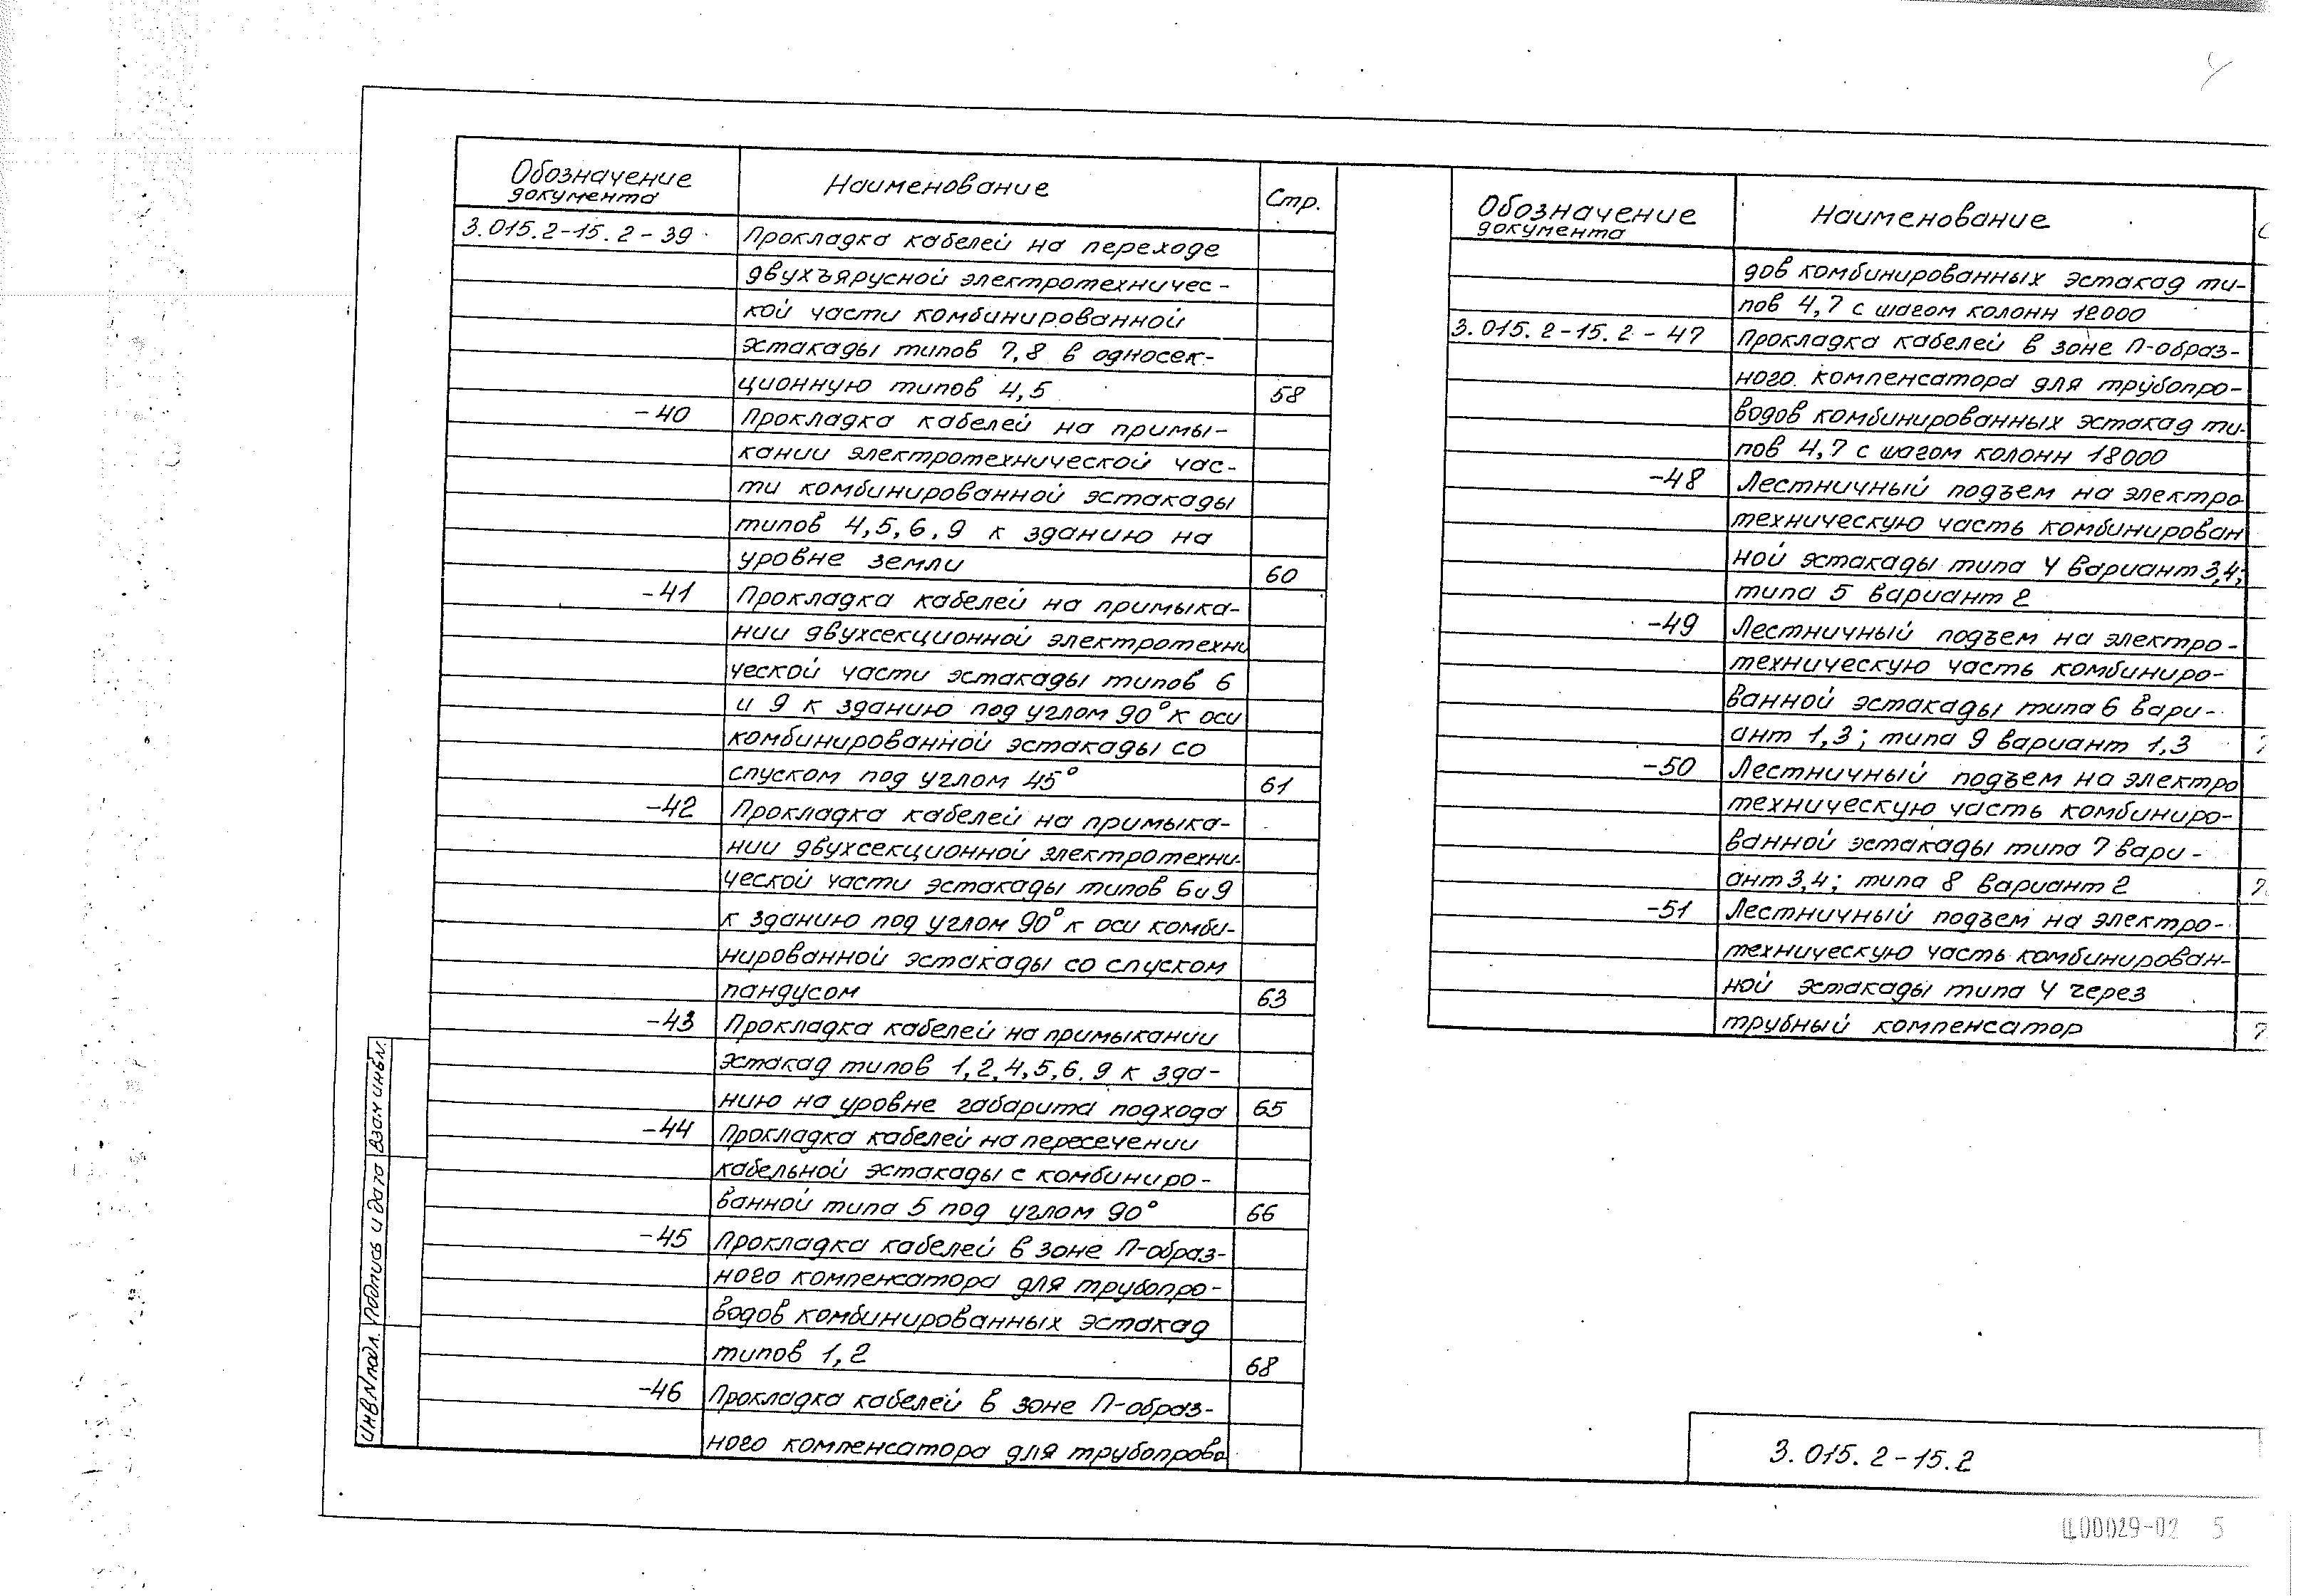 4
Обозначение документа | Наименование | Стр.
3.015.2-15.2-39 | Прокладка кабелей на переходе
двухъярусной электротехничес-
кой части комбинированной
эстакады типов 7,8 в односек-
ционную типов 4,5 | 58
-40 | Прокладка кабелей на примы-
кании электротехнической час-
ти комбинированной эстакады
типов 4,5,6,9 к зданию на
уровне земли | 60
-41 | Прокладка кабелей на примыка-
нии двухсекционной электротехни
ческой части эстакады типов 6
и 9 к зданию под углом 90° к оси
комбинированной эстакады со
спуском под углом 45° | 61
-42 | Прокладка кабелей на примыка-
нии двухсекционной электротехни-
ческой части эстакады типов 6 и 9
к зданию под углом 90° к оси комби-
нированной эстакады со спуском
пандусом | 63
-43 | Прокладка кабелей на примыкании
эстакад типов 1,2,4,5,6.9 к зда-
нию на уровне габарита подхода | 65
-44 | Прокладка кабелей на пересечении
кабельной эстакады с комбиниро-
ванной типа 5 под углом 90° | 66
-45 | Прокладка кабелей в зоне П-образ-
ного компенсатора для трубопро-
водов комбинированных эстакад
типов 1,2 | 68
-46 | Прокладка кабелей в зоне П-образ-
ного компенсатора для трубопрово
Обозначение документа | Наименование | С
дов комбинированных эстакад ти-
пов 4,7 с шагом колонн 12000
3.015.2-15.2-47 | Прокладка кабелей в зоне П-образ-
ного компенсатора для трубопро-
водов комбинированных эстакад ти-
пов 4,7 с шагом колонн 18000
-48 | Лестничный подъем на электро
техническую часть комбинирован
ной эстакады типа 4 вариант 3,4;
типа 5 вариант 2
-49 | Лестничный подъем на электро-
техническую часть комбиниро-
ванной эстакады типа 6 вари-
ант 1,3; типа 9 вариант 1,3 | 7
-50 | Лестничный подъем на электро
техническую часть комбиниро-
ванной эстакады типа 7 вари-
ант 3,4; типа 8 вариант 2 | 7
-51 | Лестничный подъем на электро-
техническую часть комбинирован-
ной эстакады типа 4 через
трубный компенсатор | 7
Инв.N подл. | Подпись и дата | Взам инв.N.
3.015.2-15.2
Ц00029-02 5